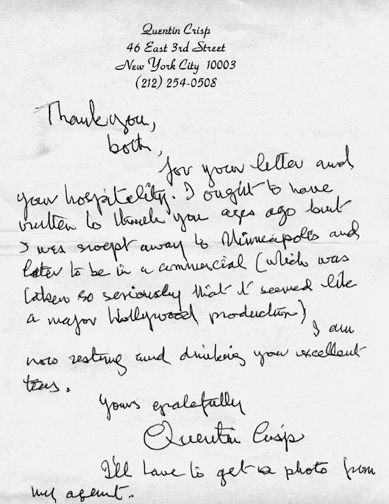 Quentin Crisp
46 East 3rd Street
New York City 10003
(212) 254-0508
Thank you,
both,
for your letter and
your hospitality. I ought to have
written to thank you ages ago but
I was swept away to Minneapolis and
later to be in a commercial (which was
taken so seriously that it seemed like
a major Hollywood production)
I am
now resting and drinking your excellent
teas.
Yours gratefully
Quentin Crisp
I'll have to get a photo from
my agent.